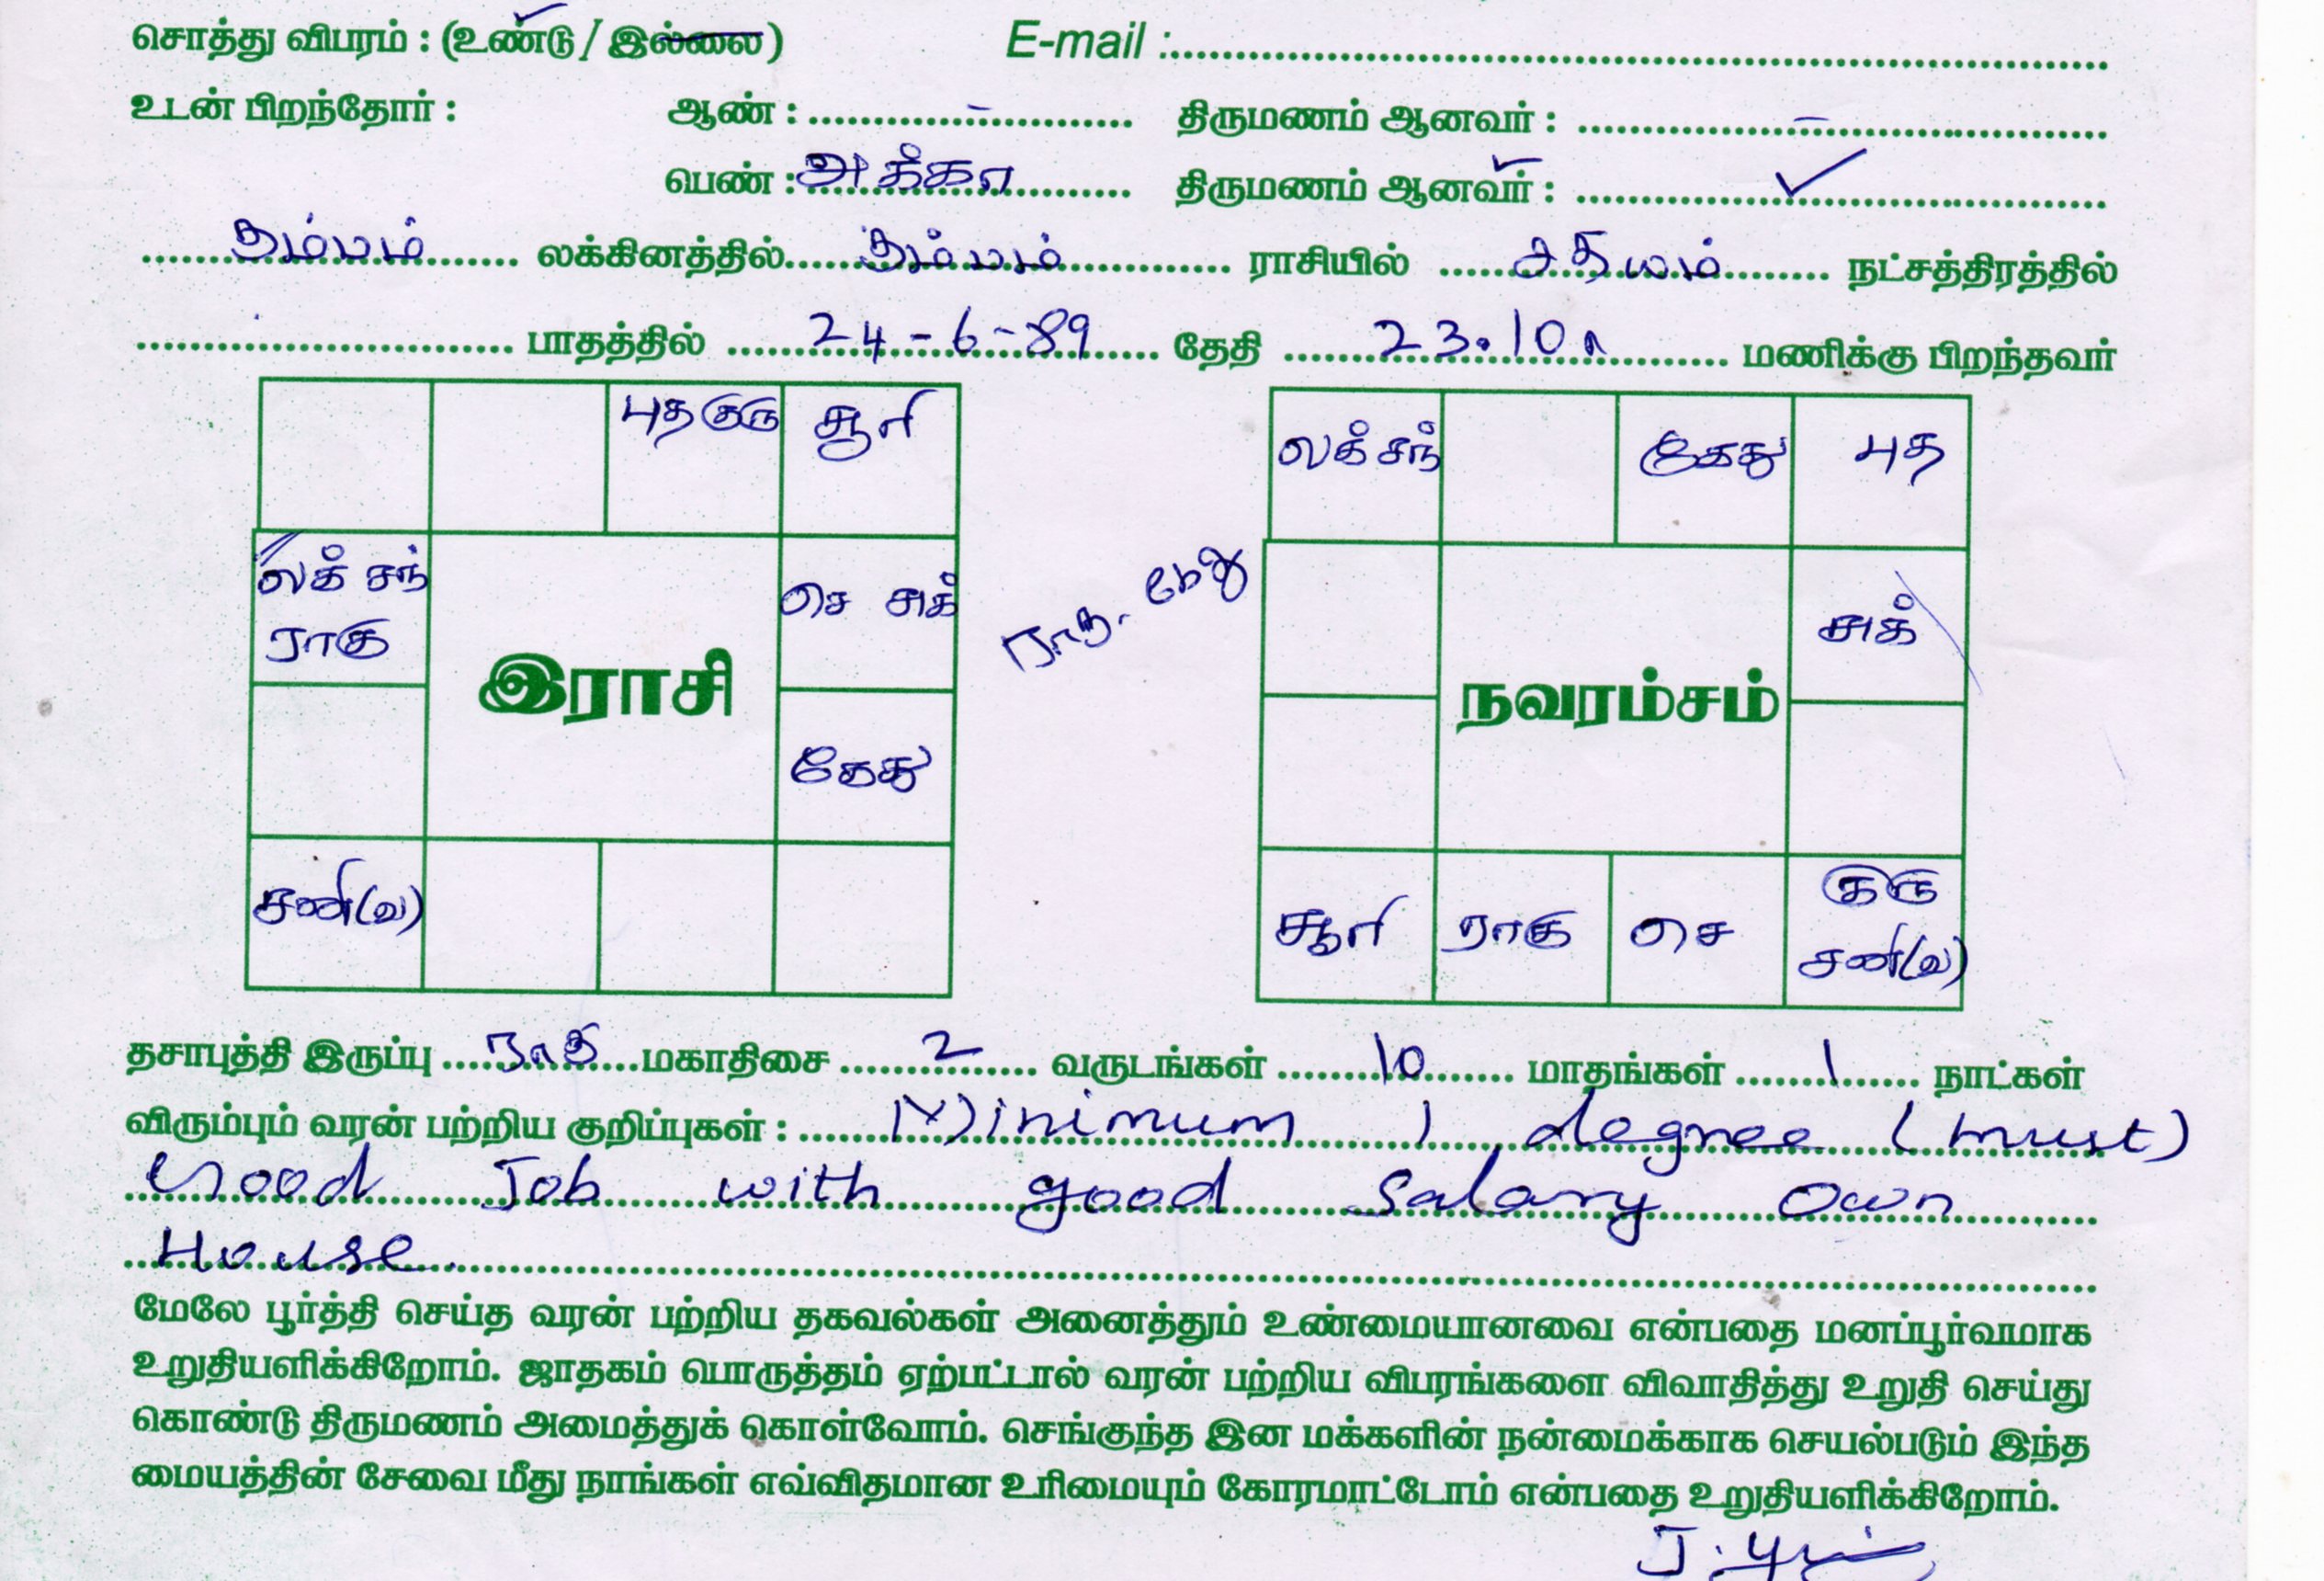 சொத்து விபரம் : (உண்டு / இல்லை) E-mail :
உடன் பிறந்தோர் : ஆண் : - திருமணம் ஆனவர் : -
பெண் : அக்கா திருமணம் ஆனவர் : ✓
கும்பம் லக்கினத்தில் கும்பம் ராசியில் சதயம் நட்சத்திரத்தில்
பாதத்தில் 24-6-89 தேதி 23.10 மணிக்கு பிறந்தவர்
புத குரு சூரி
லக் சந் கேது புத
லக் சந்
ராகு
செ சுக்
ராகு. கேது
சுக்
இராசி
நவரம்சம்
கேது
சனி(வ)
சூரி ராகு செ குரு
சனி(வ)
தசாபுத்தி இருப்பு ராகு மகாதிசை 2 வருடங்கள் 10 மாதங்கள் 1 நாட்கள்
விரும்பும் வரன் பற்றிய குறிப்புகள் : Minimum 1 degree (must)
Good Job with good Salary Own
House.
மேலே பூர்த்தி செய்த வரன் பற்றிய தகவல்கள் அனைத்தும் உண்மையானவை என்பதை மனப்பூர்வமாக
உறுதியளிக்கிறோம். ஜாதகம் பொருத்தம் ஏற்பட்டால் வரன் பற்றிய விபரங்களை விவாதித்து உறுதி செய்து
கொண்டு திருமணம் அமைத்துக் கொள்வோம். செங்குந்த இன மக்களின் நன்மைக்காக செயல்படும் இந்த
மையத்தின் சேவை மீது நாங்கள் எவ்விதமான உரிமையும் கோரமாட்டோம் என்பதை உறுதியளிக்கிறோம்.